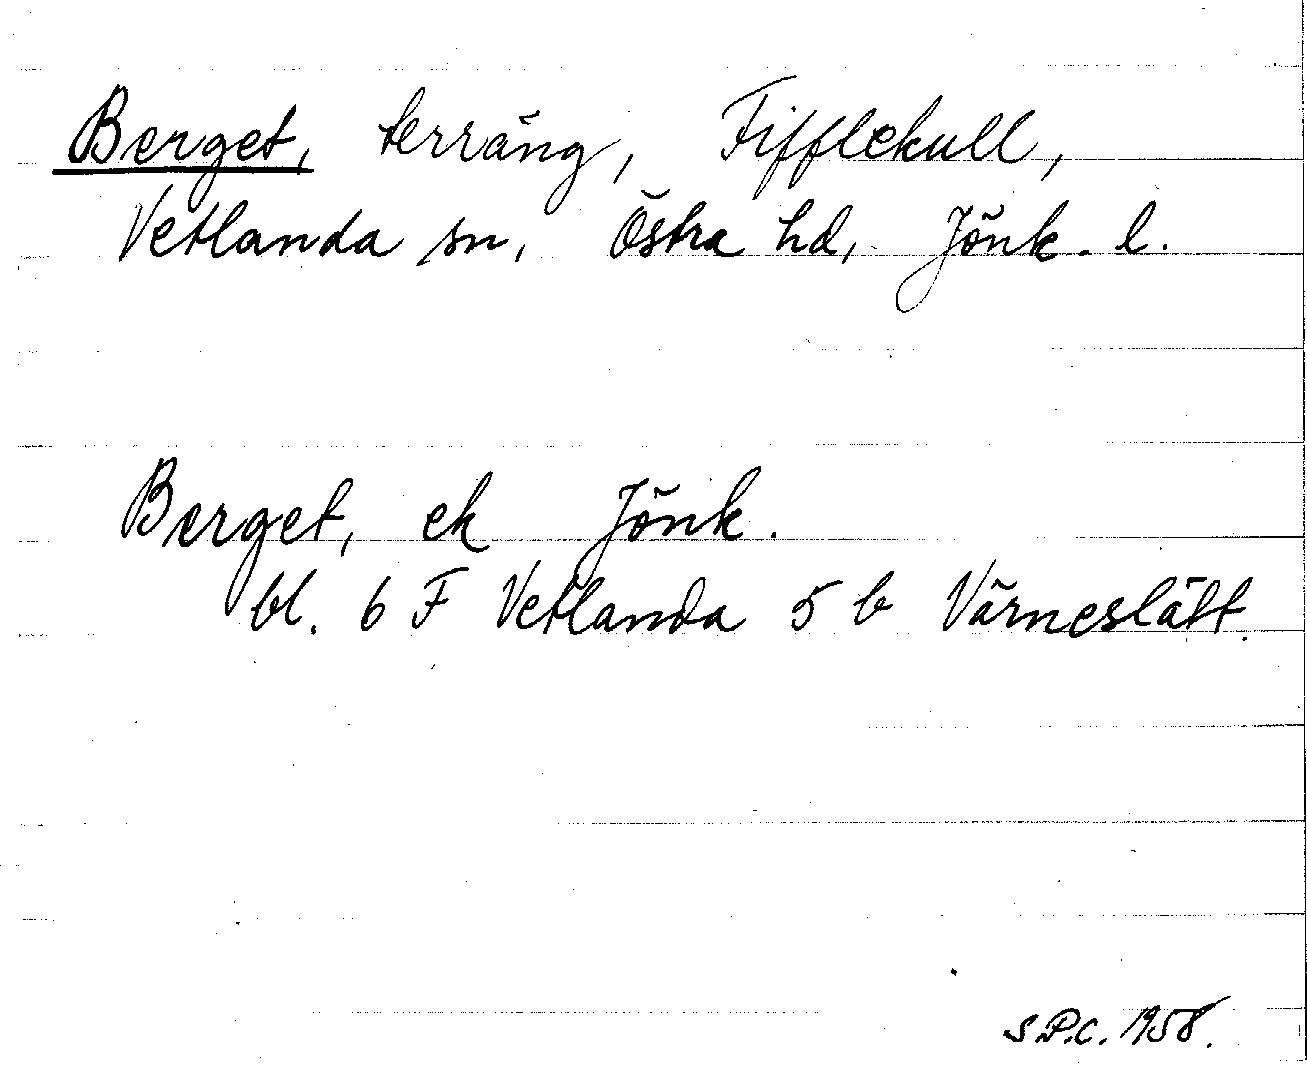 Berget, terräng, Fifflekull,
Vetlanda sn, Östra hd, Jönk. l.
Berget, ek Jönk.
bl. 6 F Vetlanda 5 b Värneslätt.
S.P.C. 1958.